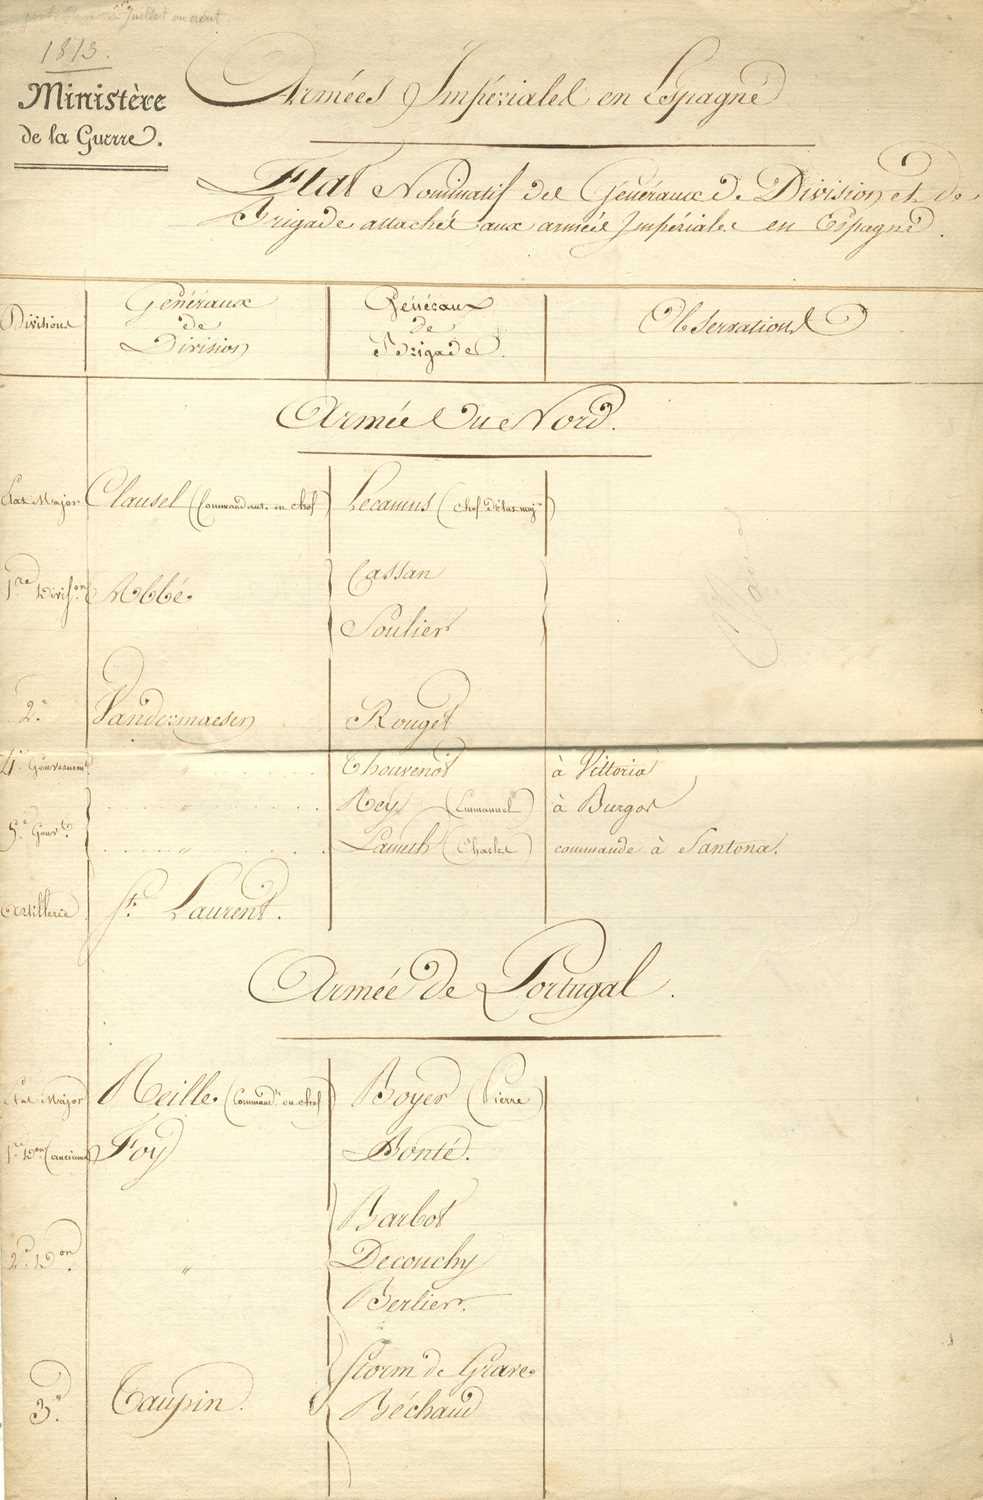 1813.
Ministère
de la Guerre.
Armées Impériales en Espagne
Etat Nominatif des Généraux de Division et de
Brigade attachés aux armées Impériales en Espagne.
Divisions
Généraux
de
Division
Généraux
de
Brigade
Observations
Armée du Nord.
Etat Major Clausel (Commandant en chef) Lecamus (chef d'état maj.r)
1re Divi.on Abbé. Cassan
Soulier
2e Vandermaesen Rouget
4e Gouvernem.t " Thouvenot à Vittoria
5e Gouv.t " Rey (Emmanuel) à Burgos
" Lameth (Charles) commande à Santona.
Artillerie St. Laurent.
Armée de Portugal.
Etat Major Reille. (Command.t en chef) Boyer (Pierre)
1re Don (ancienne) Foy Bonté.
2e Don " Barbot
Decouchy
Berlier.
3e Taupin. Storm de Grave.
Béchaud